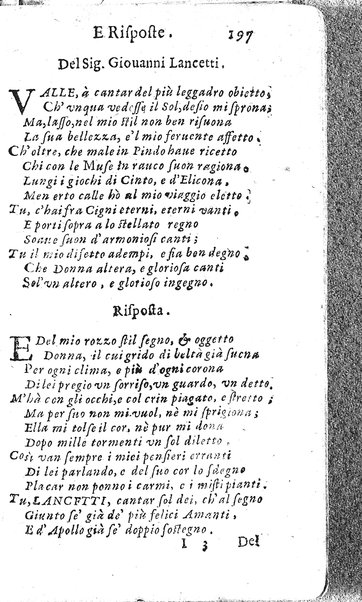 E Risposte. 197
Del Sig. Giouanni Lancetti.
VALLE, à cantar del più leggadro obietto;
Ch'vnqua vedesse il Sol, desio mi sprona;
Ma, lasso, nel mio stil non ben risuona
La sua bellezza, e'l mio feruente affetto.
Ch'oltre, che male in Pindo haue ricetto
Chi con le Muse in rauco suon ragiona,
Lungi i giochi di Cinto, e d'Elicona.
Men erto calle hò al mio viaggio eletto.
Tu, c'hai fra Cigni eterni, eterni vanti.
E porti sopra lo stellato regno
Soaue suon d'armoniosi canti;
Tu il mio difetto adempi, e sia ben degno.
Che Donna altera, e gloriosa canti
Sol'un altero, e glorioso ingegno.
Risposta.
E Del mio rozzo stil segno, & oggetto
Donna, il cui grido di beltà già suona
Per ogni clima, e più d'ogni corona
Di lei pregio vn sorriso, vn guardo, vn detto.
M'hà con gli occhi, e col crin piagato, e stretto;
Ma per suo non mi vuol, nè mi sprigiona;
Ella mi tolse il cor, nè pur mi dona
Dopo mille tormenti vn sol diletto.
Così van sempre i miei pensieri erranti
Di lei parlando, e del suo cor lo sdegno
Placar non ponno i carmi, e i misti pianti.
Tu, LANCETTI, cantar sol dei, ch'al segno
Giunto se' già de' più felici Amanti,
E d'Apollo già se' doppio sostegno.
I 3 Del